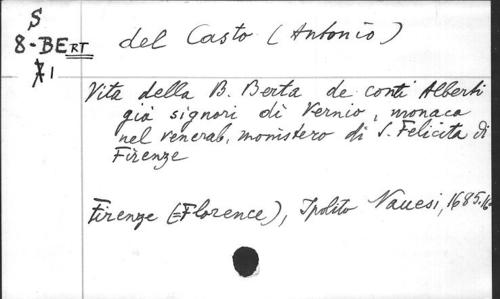 S
8-BERT
1
del Casto (Antonio)
Vita della B. Berta de conti Alberti
già signori di Vernio, monaca
nel venerab. monistero di S. Felicita di
Firenze
Firenze (=Florence), Ipolito Navesi, 1685.